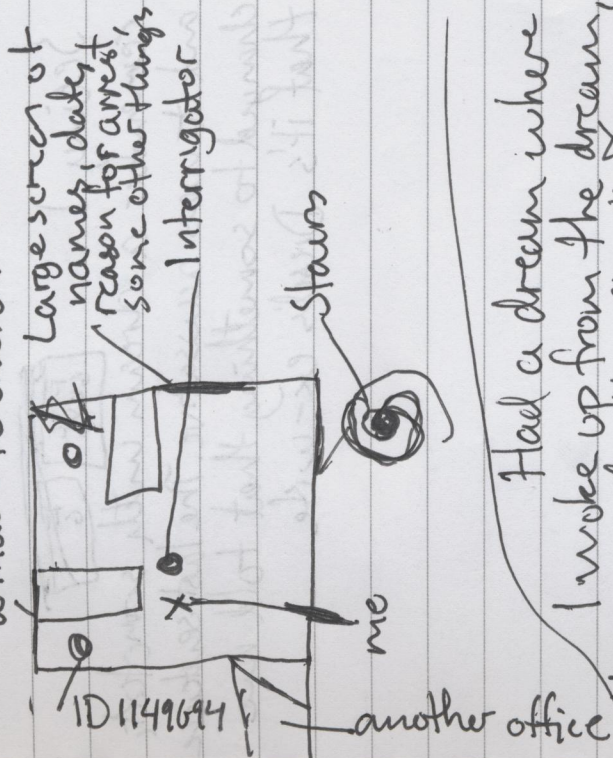 Large screen of
names, dates,
reason for arrest,
some other things
Interrigator
Stairs
me
ID 1149694
another office
Had a dream where
I woke up from the dream,